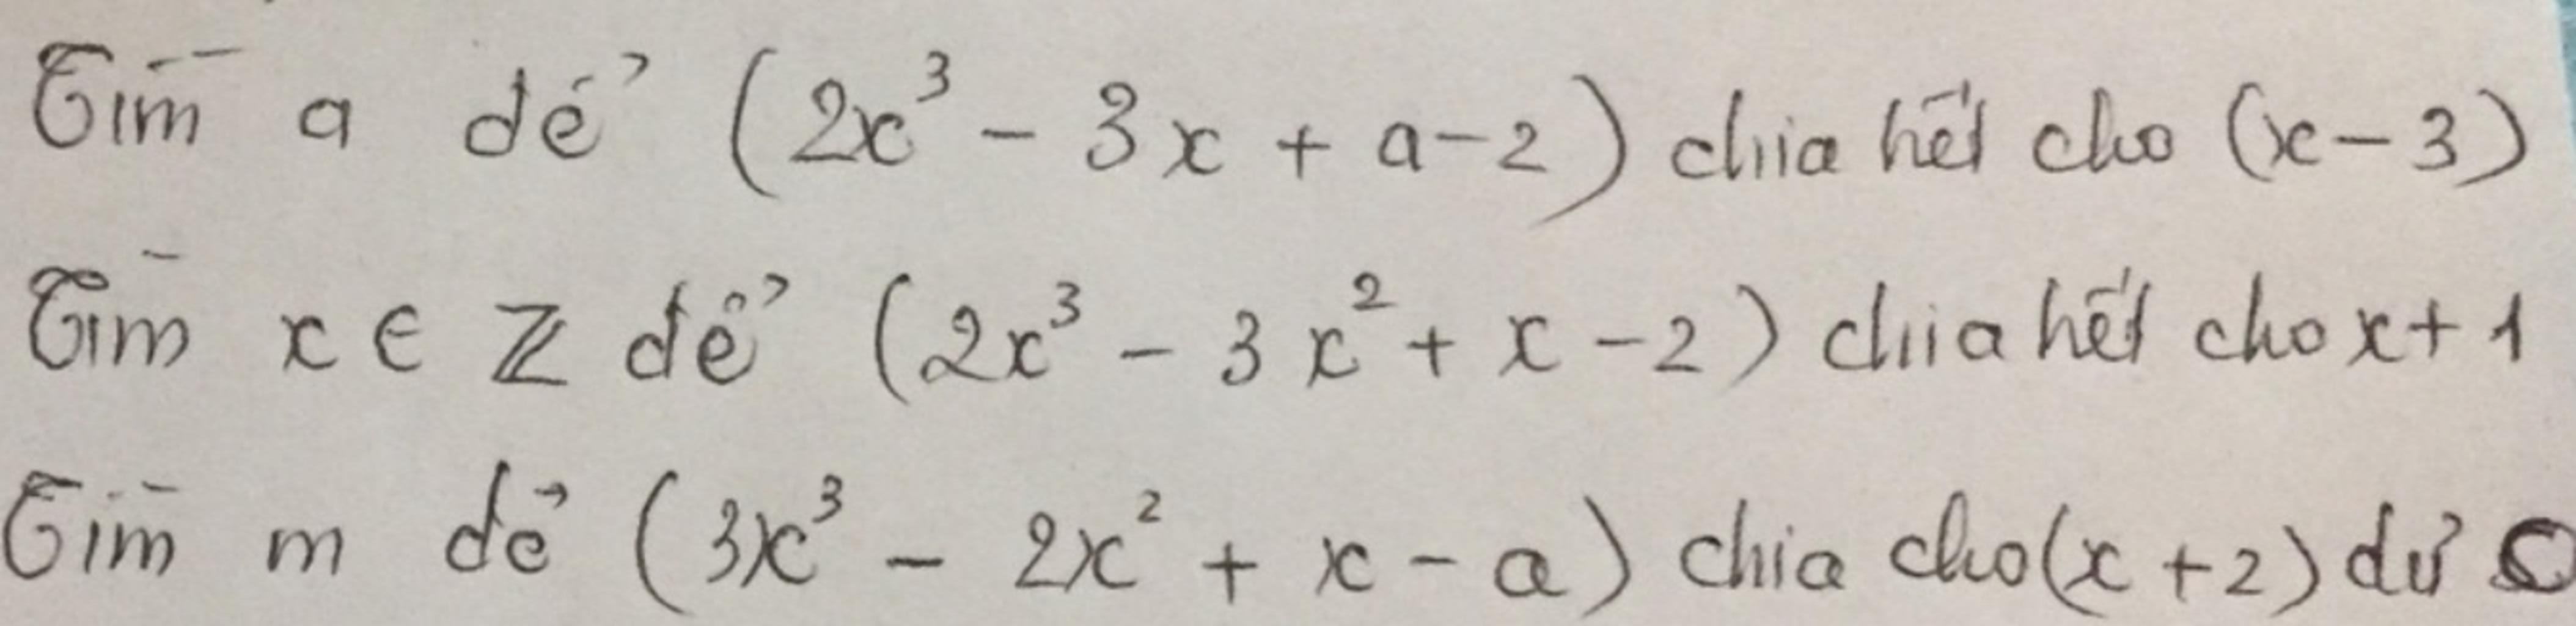 Tìm a để (2x³ - 3x + a - 2) chia hết cho (x - 3)
Tìm x ∈ Z để (2x³ - 3x² + x - 2) chia hết cho x + 1
Tìm m để (3x³ - 2x² + x - a) chia cho (x + 2) dư